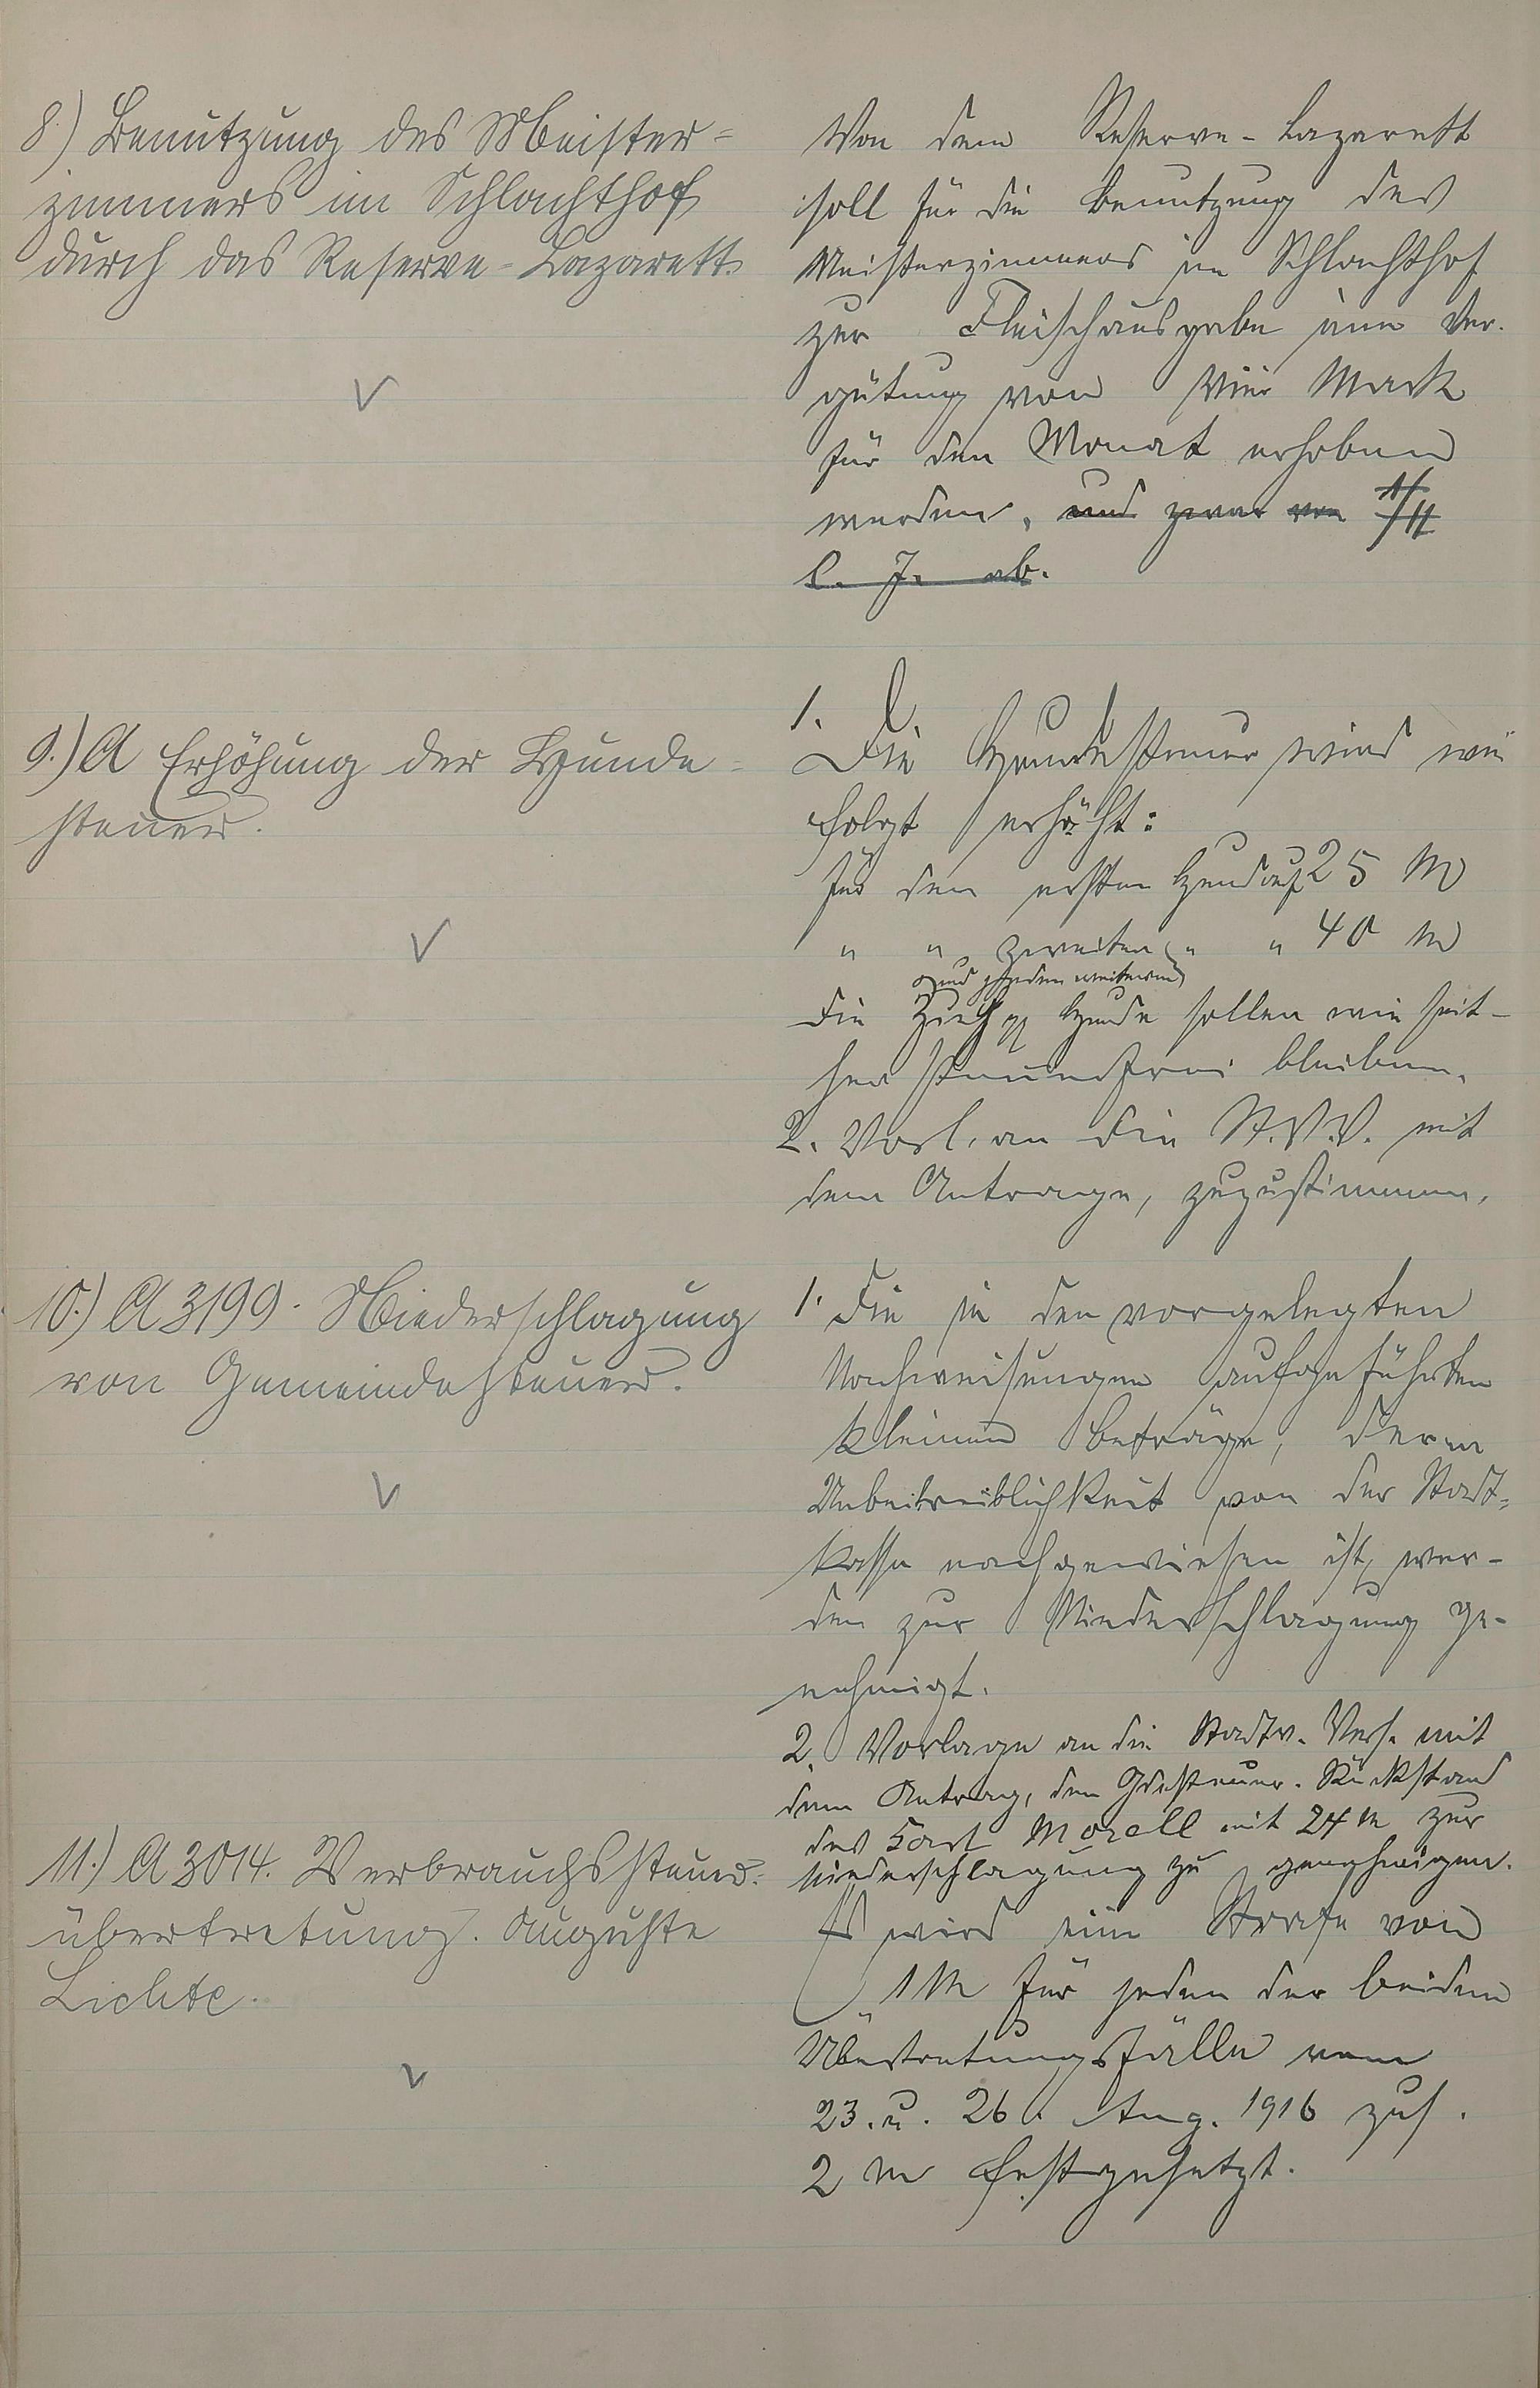 8.) Benutzung des Meister=
zimmers im Schlachthof
durch das Reserve-Lazarett.
Von dem Reserve-Lazarett
soll für die Benutzung des
Meisterzimmers im Schlachthof
zur Fleischausgabe eine Ver-
gütung von vier Mark
für den Monat erhoben
werden, und zwar von 1/11
l. J. ab.
9.) A Erhöhung der Hunde=
steuer.
1.
Die Hundesteuer wird wie
folgt erhöht:
für den ersten Hund auf 25 M
" " zweiten " " 40 M
und jeden weiteren
Die Hunde sollen wie seit-
her steuerfrei bleiben.
2. Vorl. an die St.V.V. mit
dem Antrage, zuzustimmen.
10.) A 3199. Niederschlagung
von Gemeindesteuer.
1. Die in den vorgelegten
Nachweisungen aufgeführten
kleinen Beträge, deren
Unbeitreiblichkeit von der Stadt=
kasse nachgewiesen ist, wer-
den zur Niederschlagung ge-
nehmigt.
2. Vorlage an die Stadtv. Vers. mit
dem Antrag, den Gdesteuer-Rückstand
des Morell mit 24 M zur
Niederschlagung zu genehmigen.
11.) A 3014. Verbrauchssteuer=
übertretung. Auguste
Lichte.
Es wird eine Strafe von
1 M für jeden der beiden
Übertretungsfälle vom
23. u. 26. Aug. 1916 zus.
2 M festgesetzt.